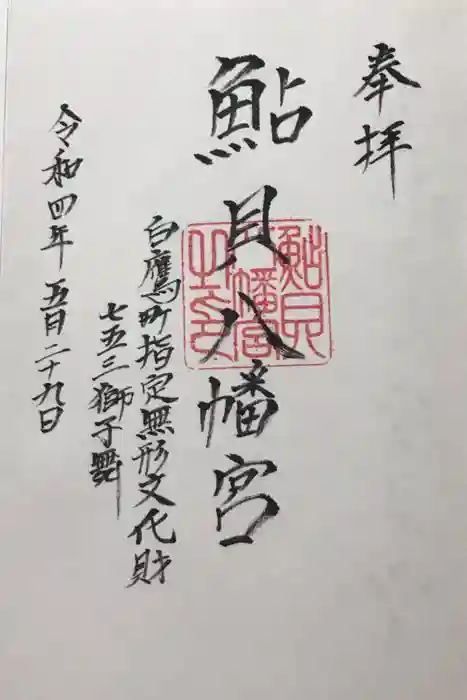 奉拝
鮎貝八幡宮
鮎貝八幡宮之印
白鷹町指定無形文化財
七五三獅子舞
令和四年 五月二十九日